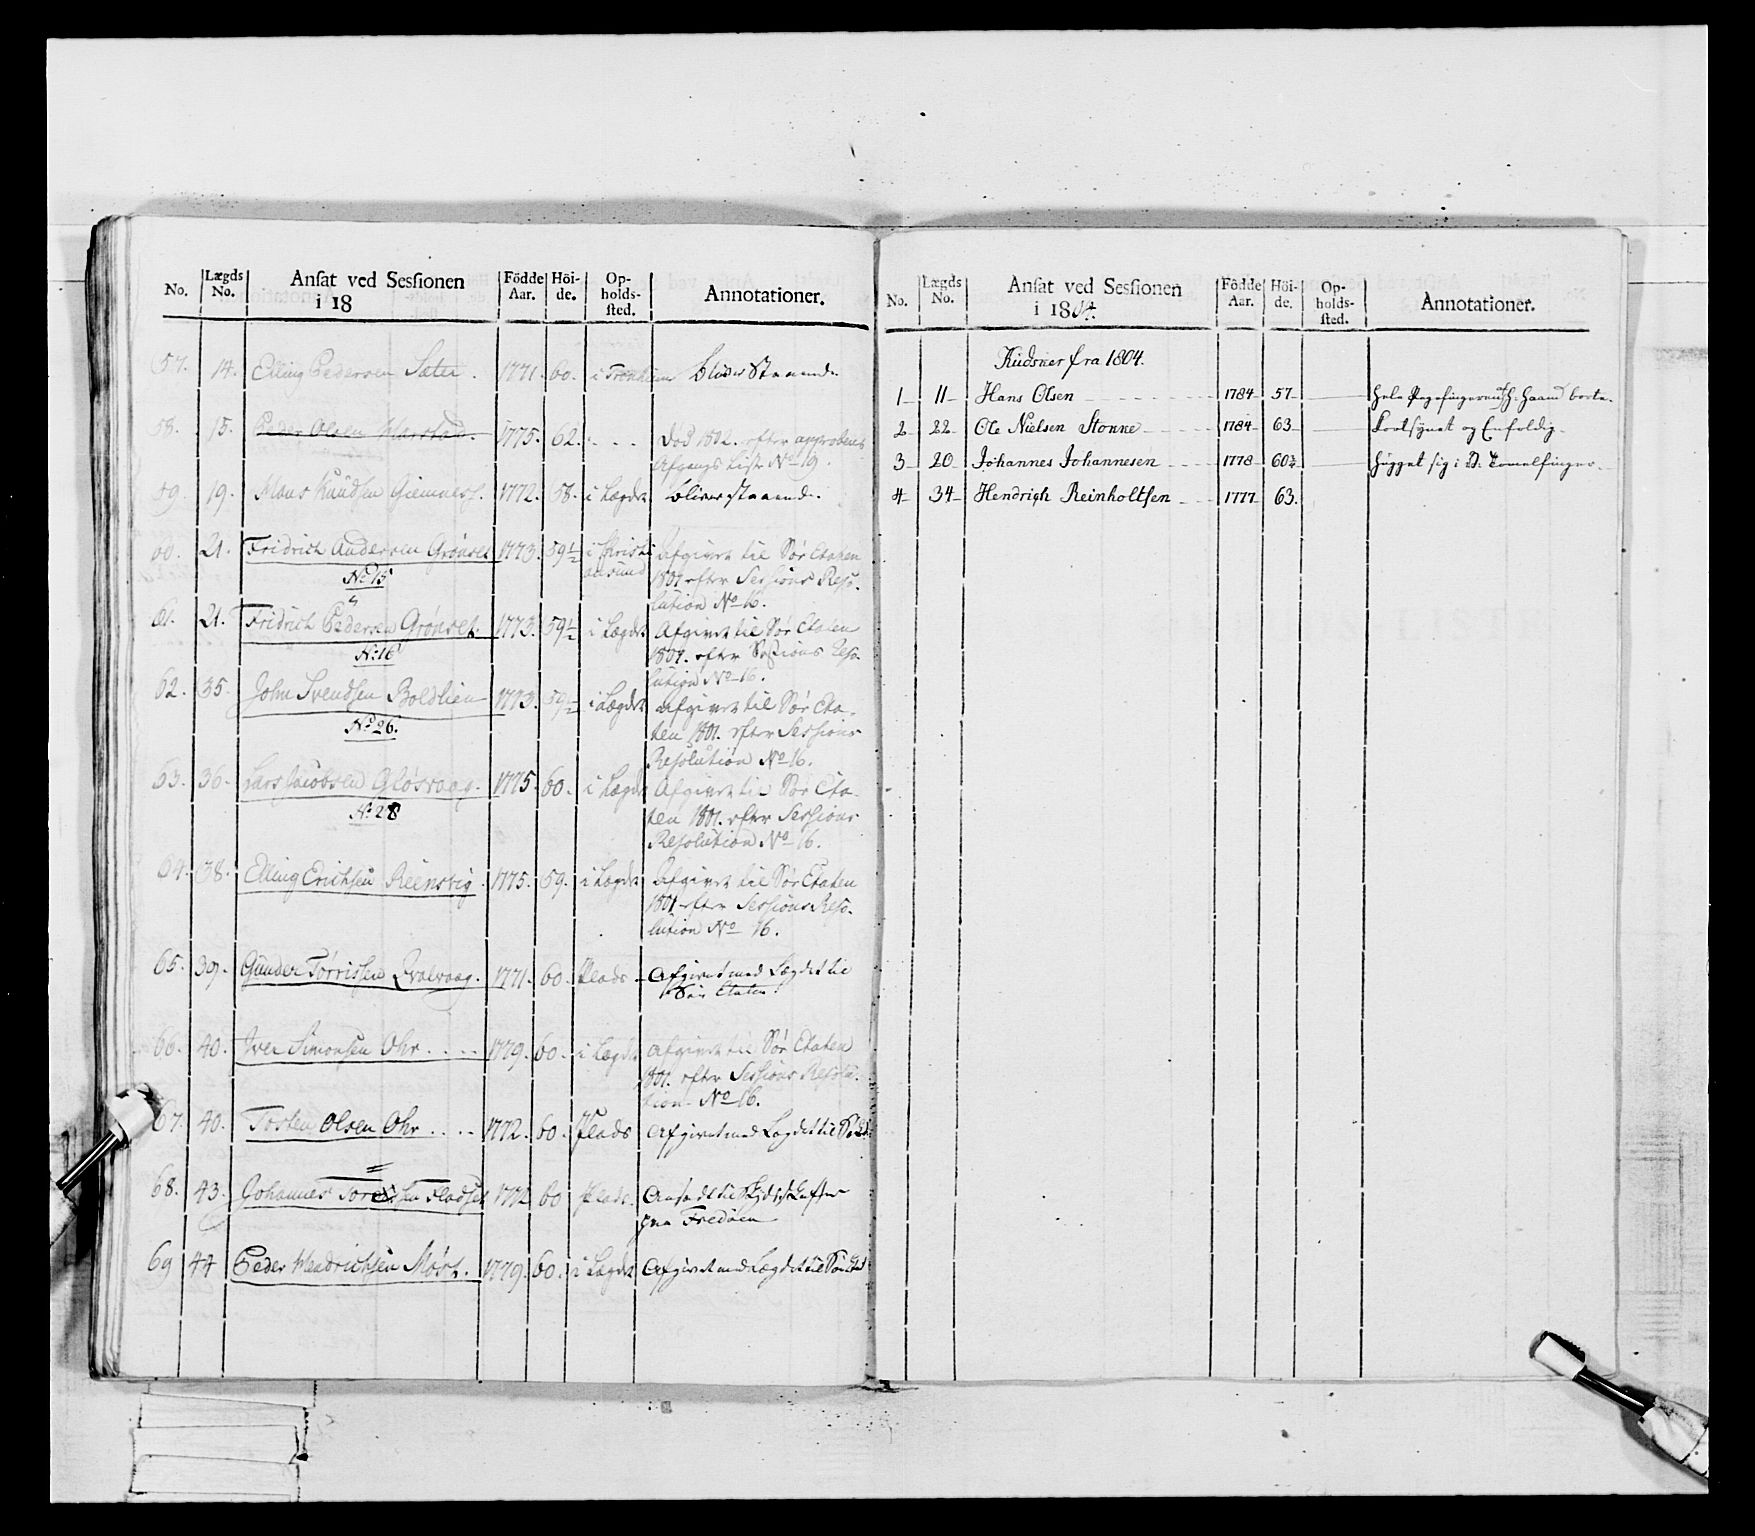 No. Lægds No. Ansat ved Sessionen i 18 Födde Aar. Höi-de. Op-holds-sted. Annotationer.
57. 14. Elling Pedersen Sæter. 1771. 60. i Tronhiem bliver staaende
58. 15. Peder Olsen Harstad. 1775. 62. Död 1802. efter approberet
Afgangs Liste No 19.
59. 19. Mons Knudsen Giemnes. 1772. 58. i Lægdet bliver staaende.
60. 21. Fridrich Andersen Grönset 1773. 59½ i Christi afgivet til Sör Etaten
No 15 ansund 1801 efter Sessions Reso-
lution No 16.
61. 21. Fridrich Pedersen Grönset. 1773. 59½ i Lægdet Afgivet til Sör Etaten
No 16 1801. efter Sessions Reso-
lution No 16.
62. 35. John Svendsen Boldlien 1773. 59½ i Lægdet afgivet til Sör Eta-
No 26. ten 1801. efter Sessions
Resolution No 16.
63. 36. Lars Jacobsen Glösvaag. 1775. 60. i Lægdet Afgivet til Sör Eta-
No 28 ten 1801. efter Sessions
Resolution No 16.
64. 38. Elling Erichsen Reensvig. 1775. 59. i Lægdet Afgivet til Sör Etaten
1801 efter Sessions Reso-
lution No 16.
65. 39. Gunder Törrissen Qvalvaag. 1771. 60. Plads Afgivet med Lægdet til
Sör Etaten.
66. 40. Iver Simonsen Ohr. 1779. 60. i Lægdet afgivet til Sör Etaten
1801. efter Sessions Resolu-
tion No 16.
67. 40. Tosten Olsen Ohr. 1772. 60. Plads Afgivet med Lægdet til
68. 43. Johannes Fladset 1772 60 Plads. Ansadt til Skydsskaffer
paa Fredöen
69 44 Peder Hendrichsen Möst. 1779. 60. i Lægdet Afgivet med Lægdet til
No. Lægds No. Ansat ved Sessionen i 1804. Födde Aar. Höi-de. Op-holds-sted. Annotationer.
Kudsker fra 1804.
1 11 Hans Olsen 1784 57 Hele Pegefingeren H. Haand borte.
2 22 Ole Nielsen Stonne 1784 63 Kortsynet og Enfoldig.
3 20 Johannes Johannesen 1778 60¾ Hugget sig i Tomelfinger.
4 34 Hendrich Reinholtsen 1777 63.